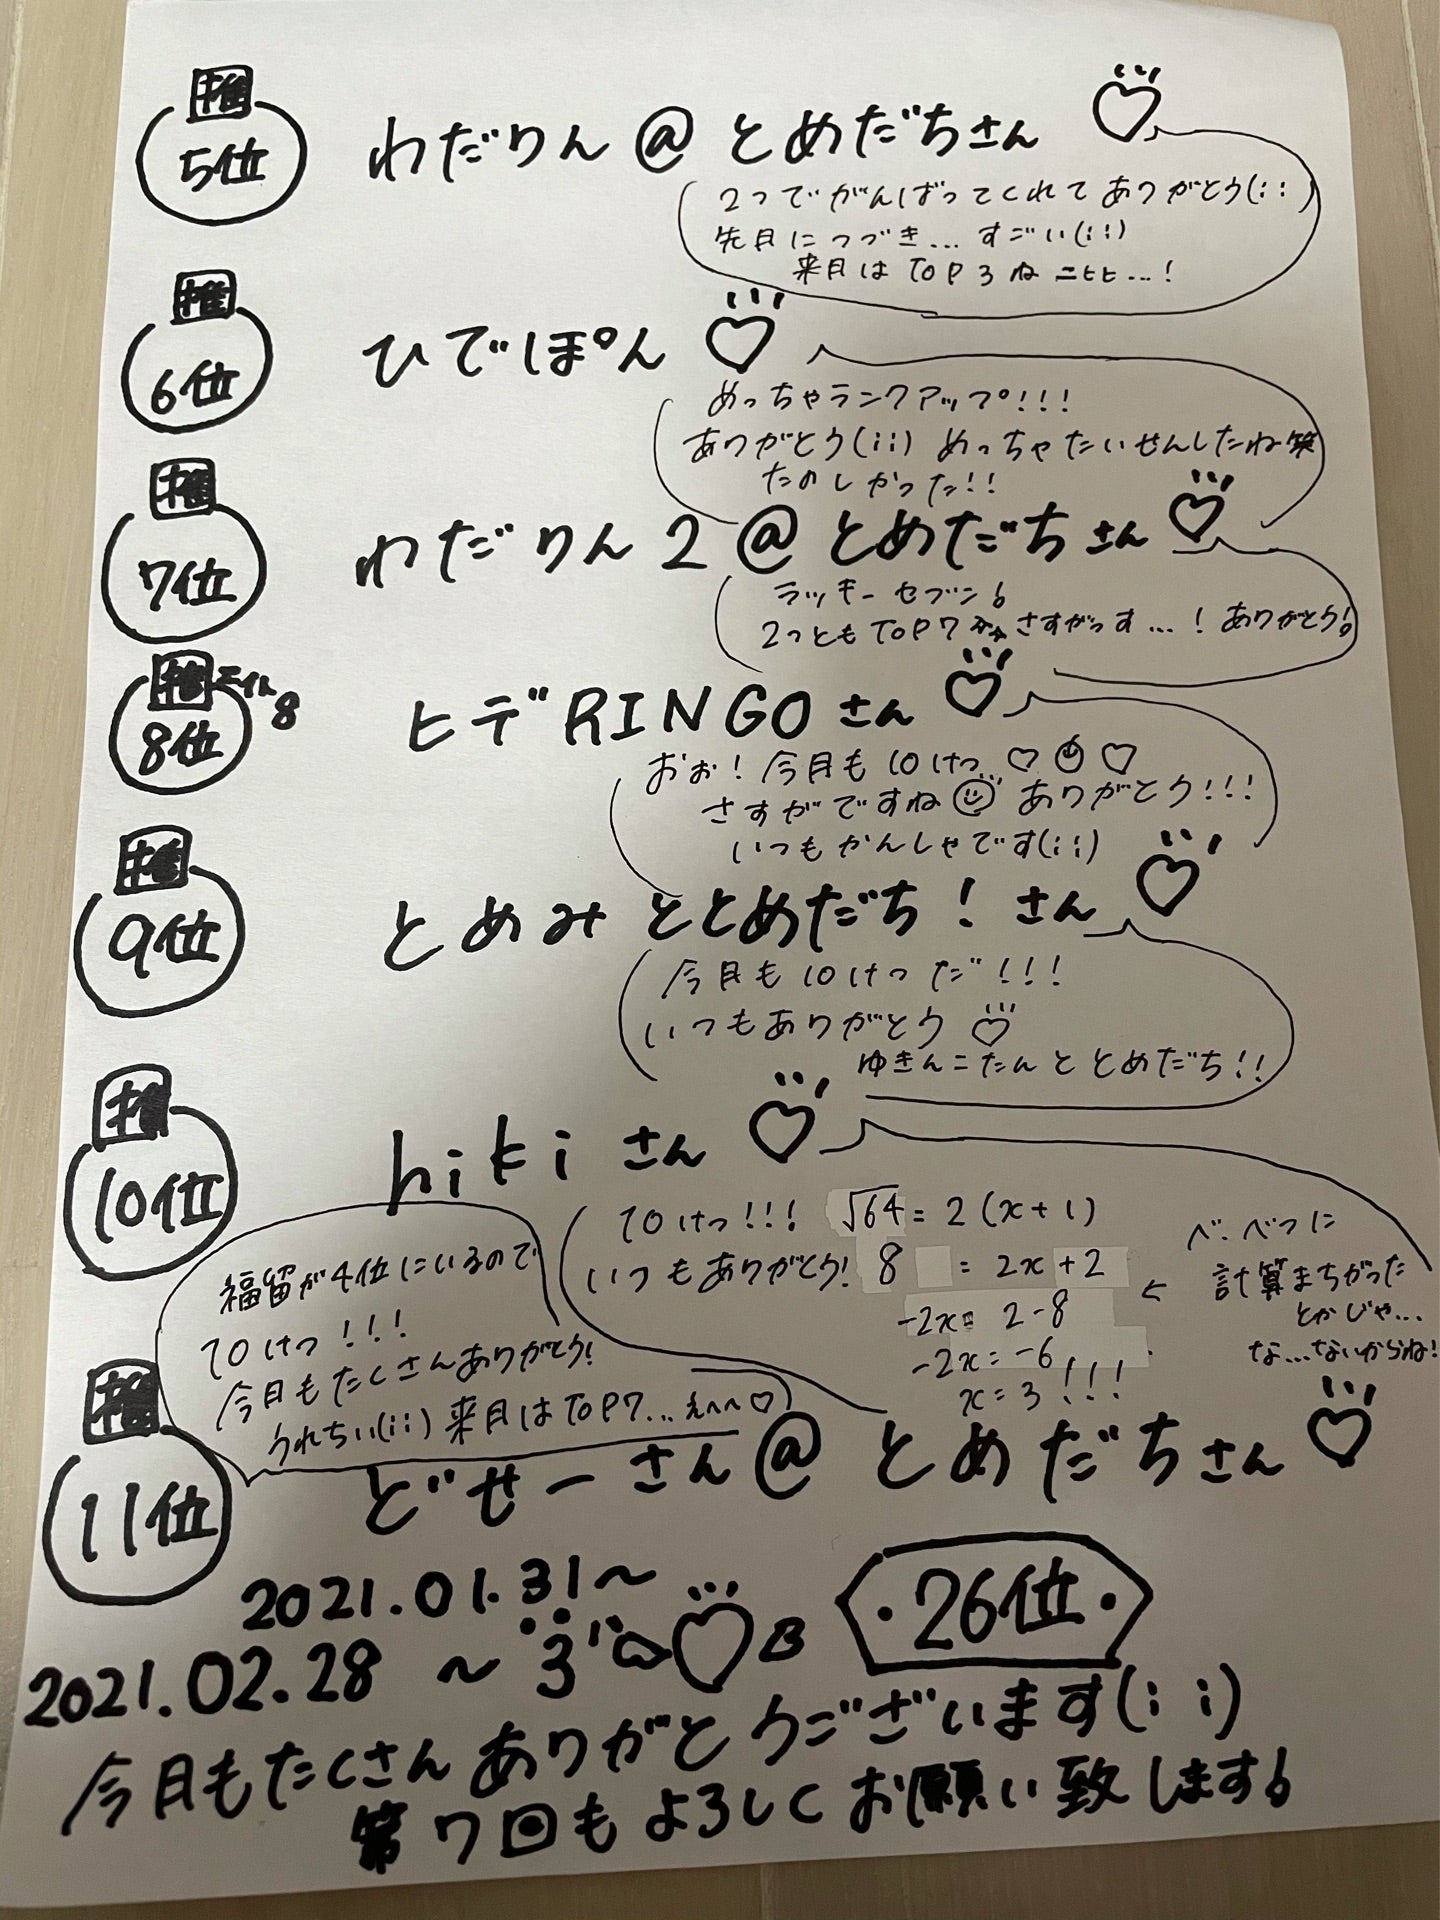 推
5位
わだりん@とめだちさん
2つでがんばってくれてありがとう(;;)
先月につづき...すごい(;;)
来月はTOP3ねニヒヒ...!
推
6位
ひでぽん
めっちゃランクアップ!!!
ありがとう(;;)めっちゃたいせんしたね笑
たのしかった!!
推
7位
わだりん2@とめだちさん
ラッキーセブン
2つともTOP7 さすがっす...!ありがとう!
推
8位
ヒデRINGOさん
おぉ!今月も10けっ♡ ♡
さすがですね ありがとう!!!
いつもかんしゃです(;;)
推
9位
とめみととめだち!さん
今月も10けっだ!!!
いつもありがとう♡
ゆきんこたんととめだち!!
推
10位
hikiさん
10けっ!!!
いつもありがとう!
√64=2(x+1)
8 =2x+2
-2x=2-8
-2x=-6
x=3!!!
べ.べつに
←計算まちがった
とかじゃ...
な...ないからね!
福留が4位にいるので
10けっ!!!
今月もたくさんありがとう!
うれちぃ(;;)来月はTOP7...えへへ♡
推
11位
どせーさん@とめだちさん
2021.01.31~
2021.02.28 ~
26位
今月もたくさんありがとうございます(;;)
第7回もよろしくお願い致します